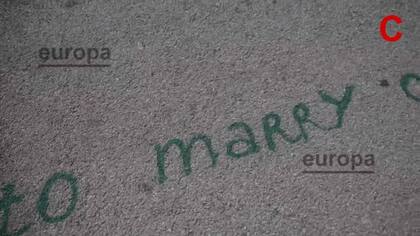 C
europa
to maRRY
europa